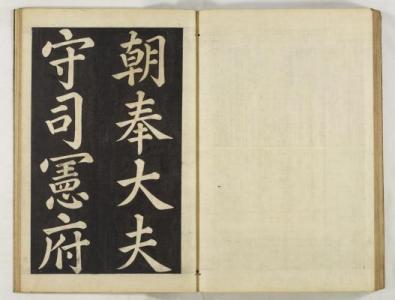 朝奉大夫
守司憲府